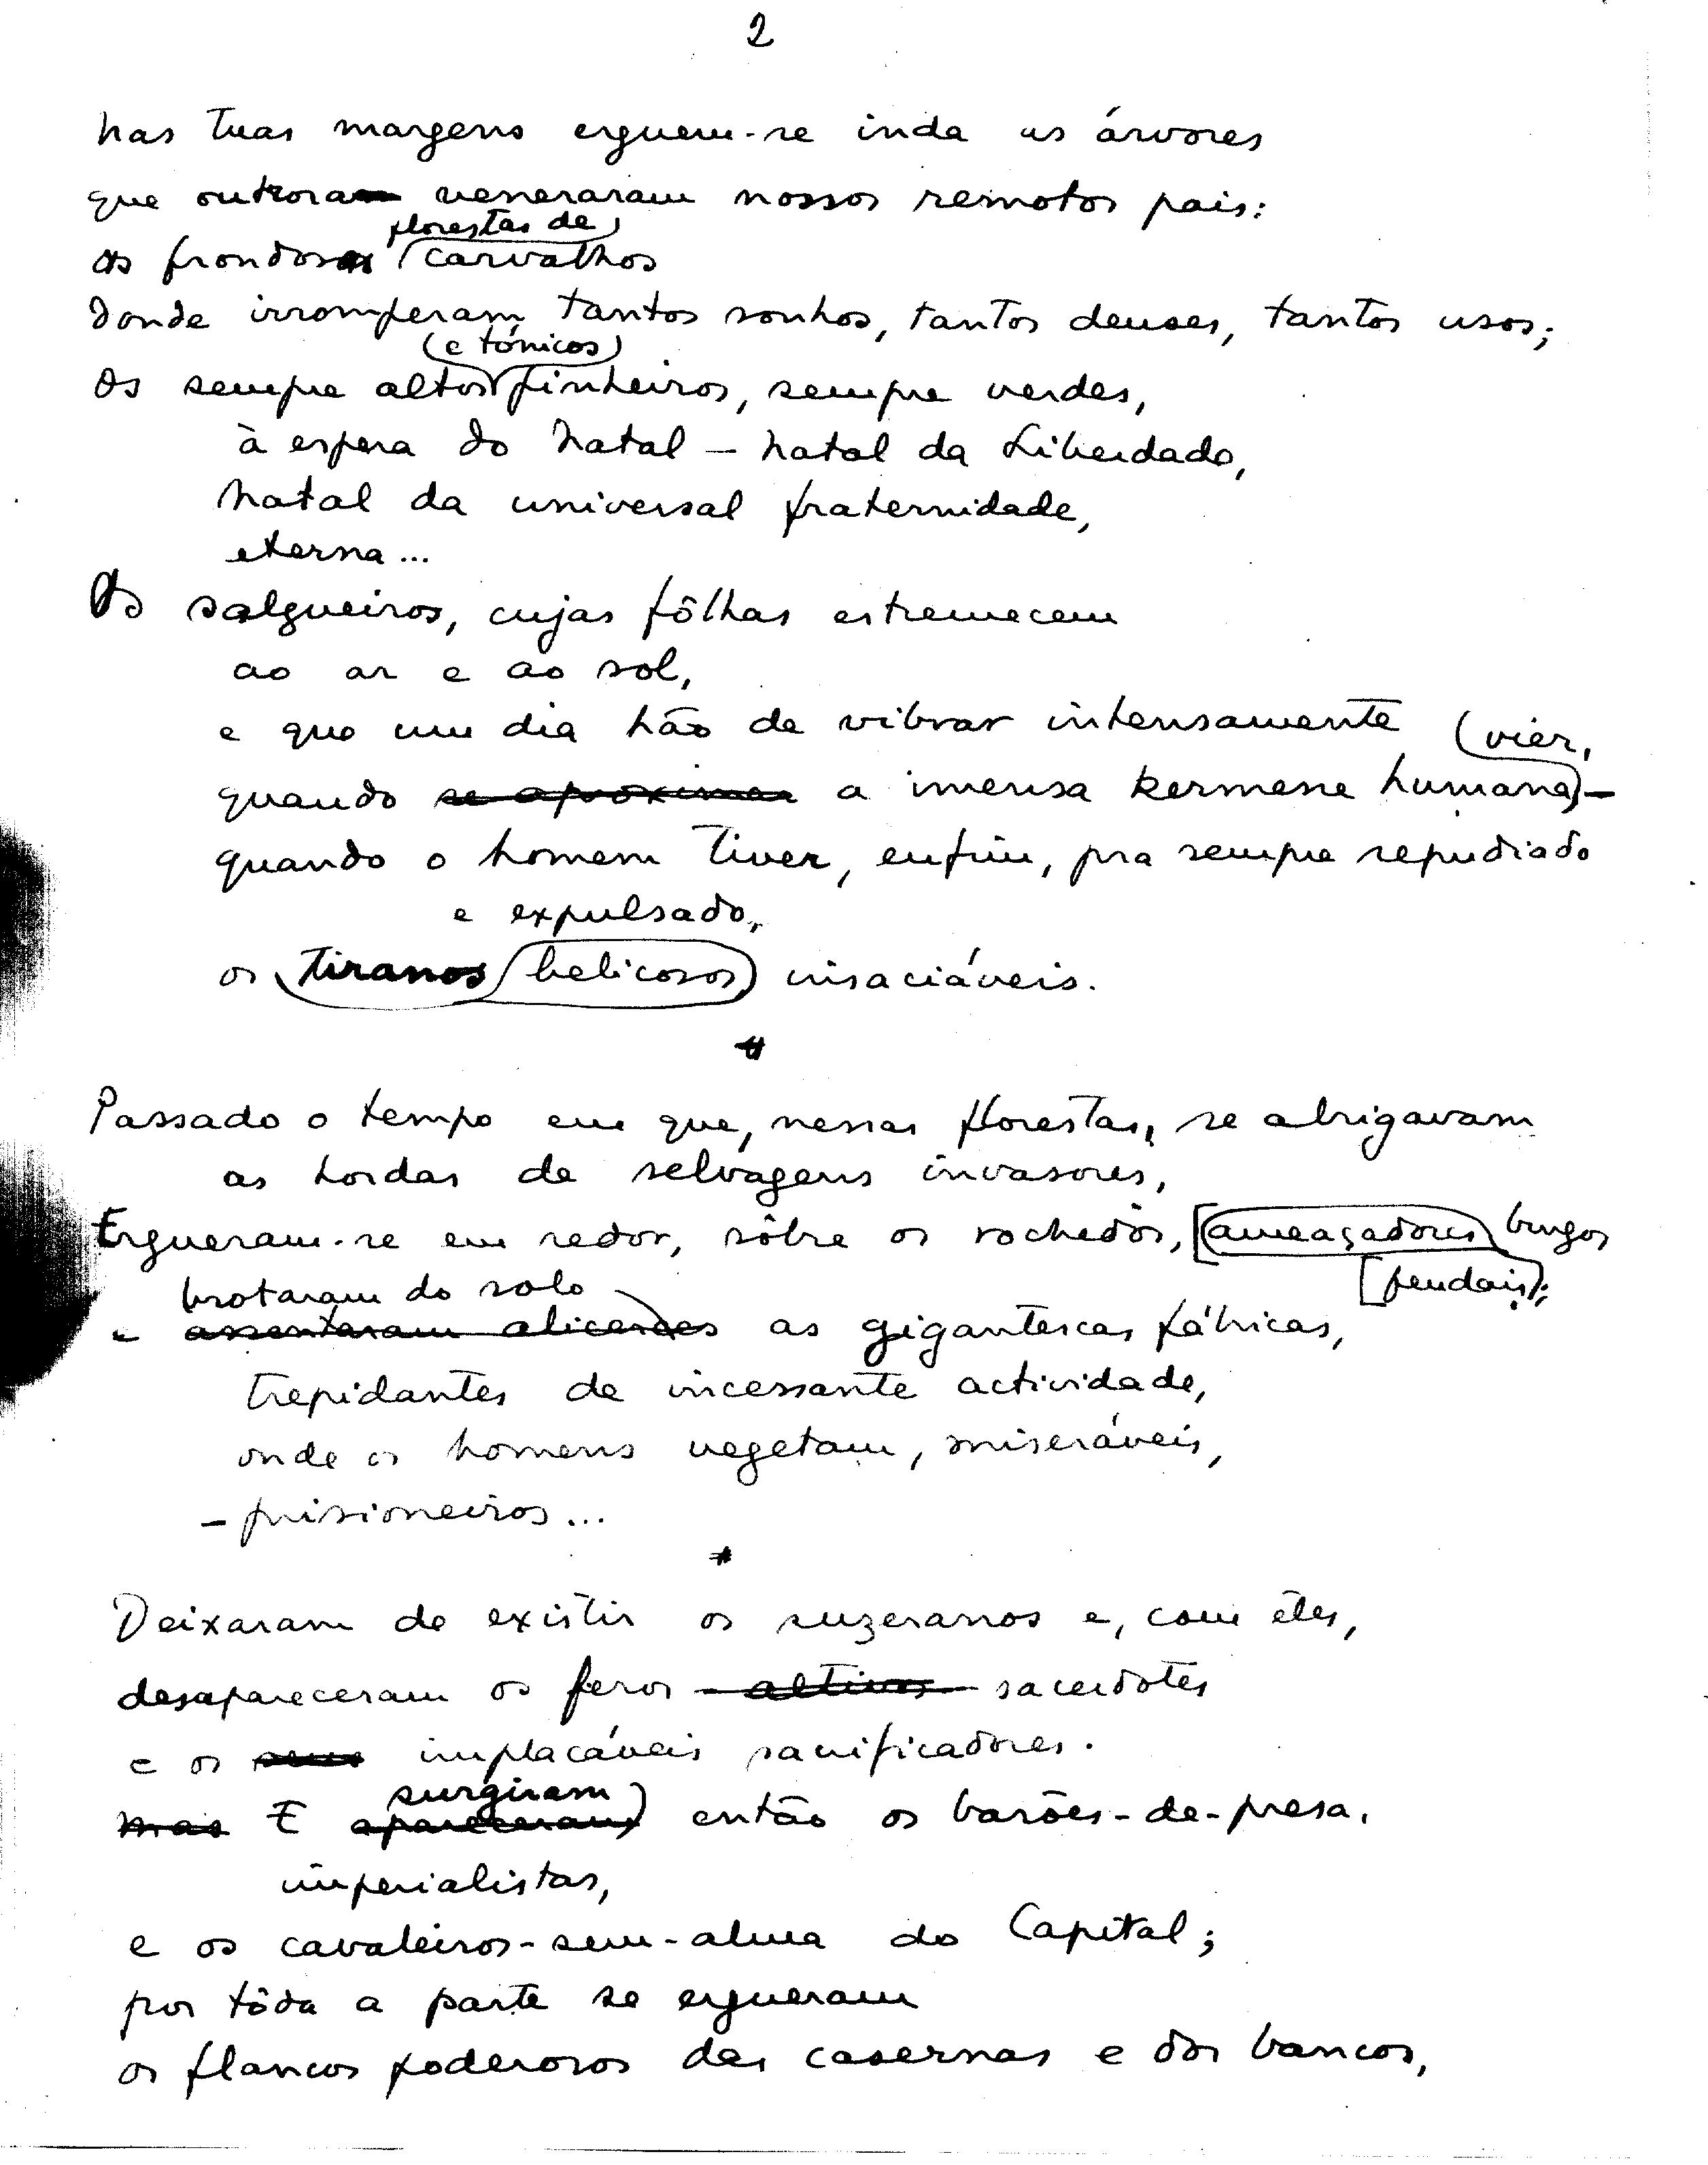 2
Nas tuas margens erguem-se inda as árvores
que outrora veneraram nossos remotos pais:
florestas de
as frondosas carvalhos
donde irromperam tantos sonhos, tantos deuses, tantos usos;
(e tónicos)
Os sempre altos pinheiros, sempre verdes,
à espera do Natal — Natal da Liberdade,
Natal da universal fraternidade,
eterna...
Os salgueiros, cujas fôlhas estremecem
ao ar e ao sol,
e que um dia hão de vibrar intensamente
(vier,
quando se aproximar a imensa kermesse humana) —
quando o homem tiver, enfim, pra sempre repudiado
e expulsado,
os tiranos belicosos insaciáveis.
*
Passado o tempo em que, nessas florestas, se abrigavam
as hordas de selvagens invasores,
Ergueram-se em redor, sôbre os rochedos, [ameaçadores burgos
[feudais);
brotaram do solo
e assentaram alicerces as gigantescas fábricas,
trepidantes de incessante actividade,
onde os homens vegetam, miseráveis,
— prisioneiros...
*
Deixaram de existir os suzeranos e, com êles,
desapareceram os feros altivos sacerdotes
e os seus implacáveis sacrificadores.
surgiram)
mas E apareceram então os barões-de-presa,
imperialistas,
e os cavaleiros-sem-alma do Capital;
por tôda a parte se ergueram
os flancos poderosos das casernas e dos bancos,